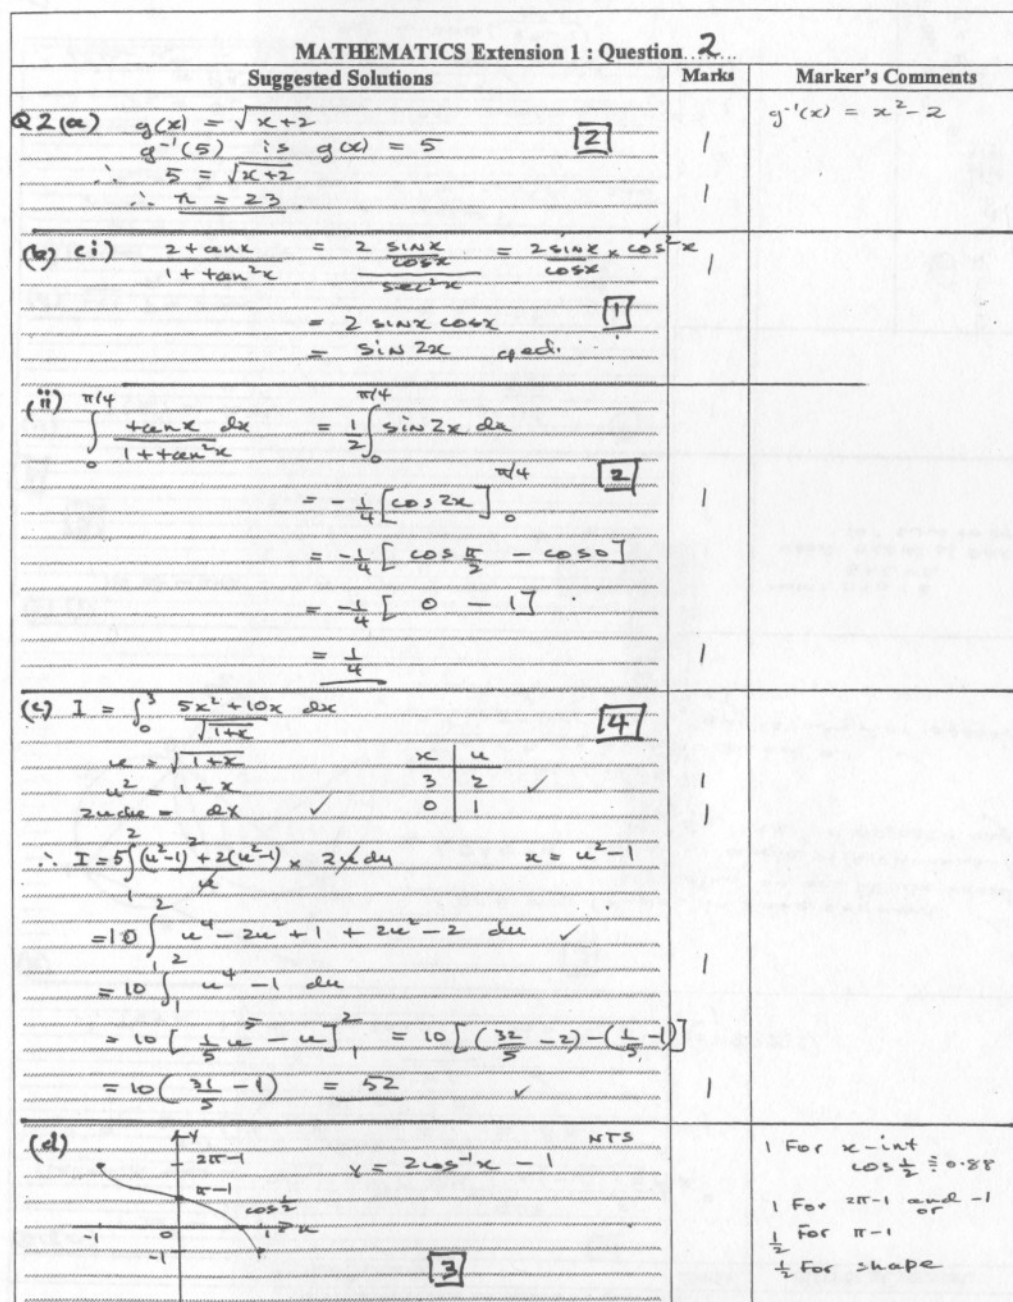 MATHEMATICS Extension 1 : Question 2
Suggested Solutions Marks Marker's Comments
Q2(a) g(x) = √(x+2) g⁻¹(x) = x² - 2
g⁻¹(5) is g(x) = 5 [2] 1
∴ 5 = √(x+2)
∴ x = 23. 1
(b) (i) 2tanx / (1 + tan²x) = 2 (sinx/cosx) / sec²x = 2sinx/cosx × cos²x ✓ 1
= 2 sinx cosx [1]
= sin 2x qed.
(ii) ∫₀^(π/4) tanx / (1 + tan²x) dx = 1/2 ∫₀^(π/4) sin 2x dx
= -1/4 [cos 2x]₀^(π/4) [2] 1
= -1/4 [cos π/2 - cos 0]
= -1/4 [0 - 1]
= 1/4 1
(c) I = ∫₀³ (5x² + 10x) / √(1+x) dx [4]
u = √(1+x) x | u
u² = 1 + x 3 | 2 ✓ 1
2u du = dx ✓ 0 | 1 1
∴ I = 5 ∫₁² ((u²-1)² + 2(u²-1)) / u × 2u du x = u² - 1
= 10 ∫₁² u⁴ - 2u² + 1 + 2u² - 2 du ✓
= 10 ∫₁² u⁴ - 1 du 1
= 10 [1/5 u⁵ - u]₁² = 10 [(32/5 - 2) - (1/5 - 1)]
= 10 (31/5 - 1) = 52 ✓ 1
(d) Y NTS
2π-1 y = 2cos⁻¹x - 1
π-1
cos 1/2
-1 0 1 x
-1
[3]
1 For x-int
cos 1/2 ≡ 0.88
1 For 2π-1 and -1
or
1/2 For π-1
1/2 For shape